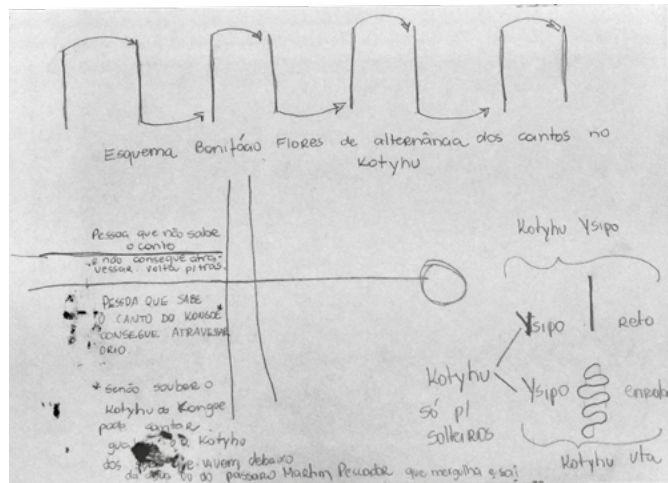 Esquema Bonifácio Flores de alternância dos cantos no
Kotyhu
Pessoa que não sabe
o canto
e não consegue atra-
vessar. volta p/tras.
PESSOA QUE SABE
O CANTO DO KONGOE*
CONSEGUE ATRAVESAR
O RIO
* senão souber o
Kotyhu do Kongoe
pode cantar
Kotyhu
dos que vivem debaxo
da ou do pássaro Martim Pescador que mergulha e sai
Kotyhu Ysipo
Ysipo
reto
Kotyhu
só p/
solteiros
Ysipo
enrola
Kotyhu Uta